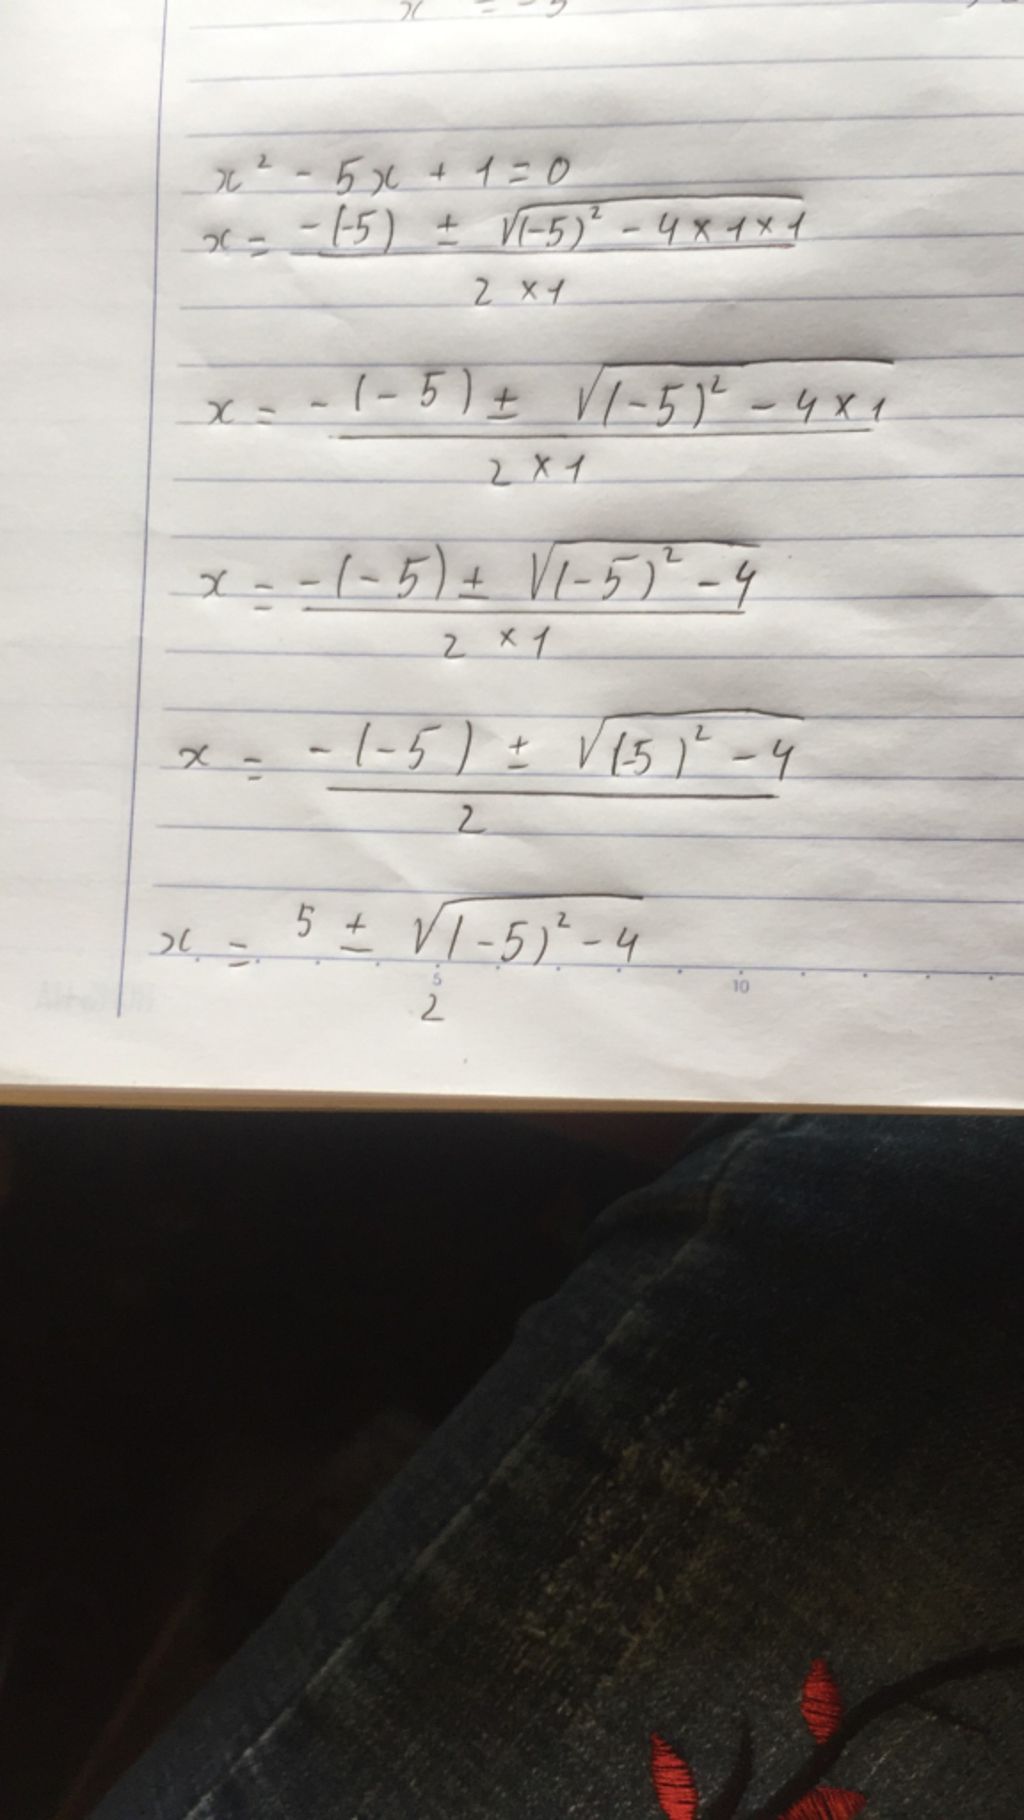 x² - 5x + 1 = 0
x = -(-5) ± √(-5)² - 4 × 1 × 1
2 × 1
x = -(-5) ± √(-5)² - 4 × 1
2 × 1
x = -(-5) ± √(-5)² - 4
2 × 1
x = -(-5) ± √(-5)² - 4
2
x = 5 ± √(-5)² - 4
5 10
2